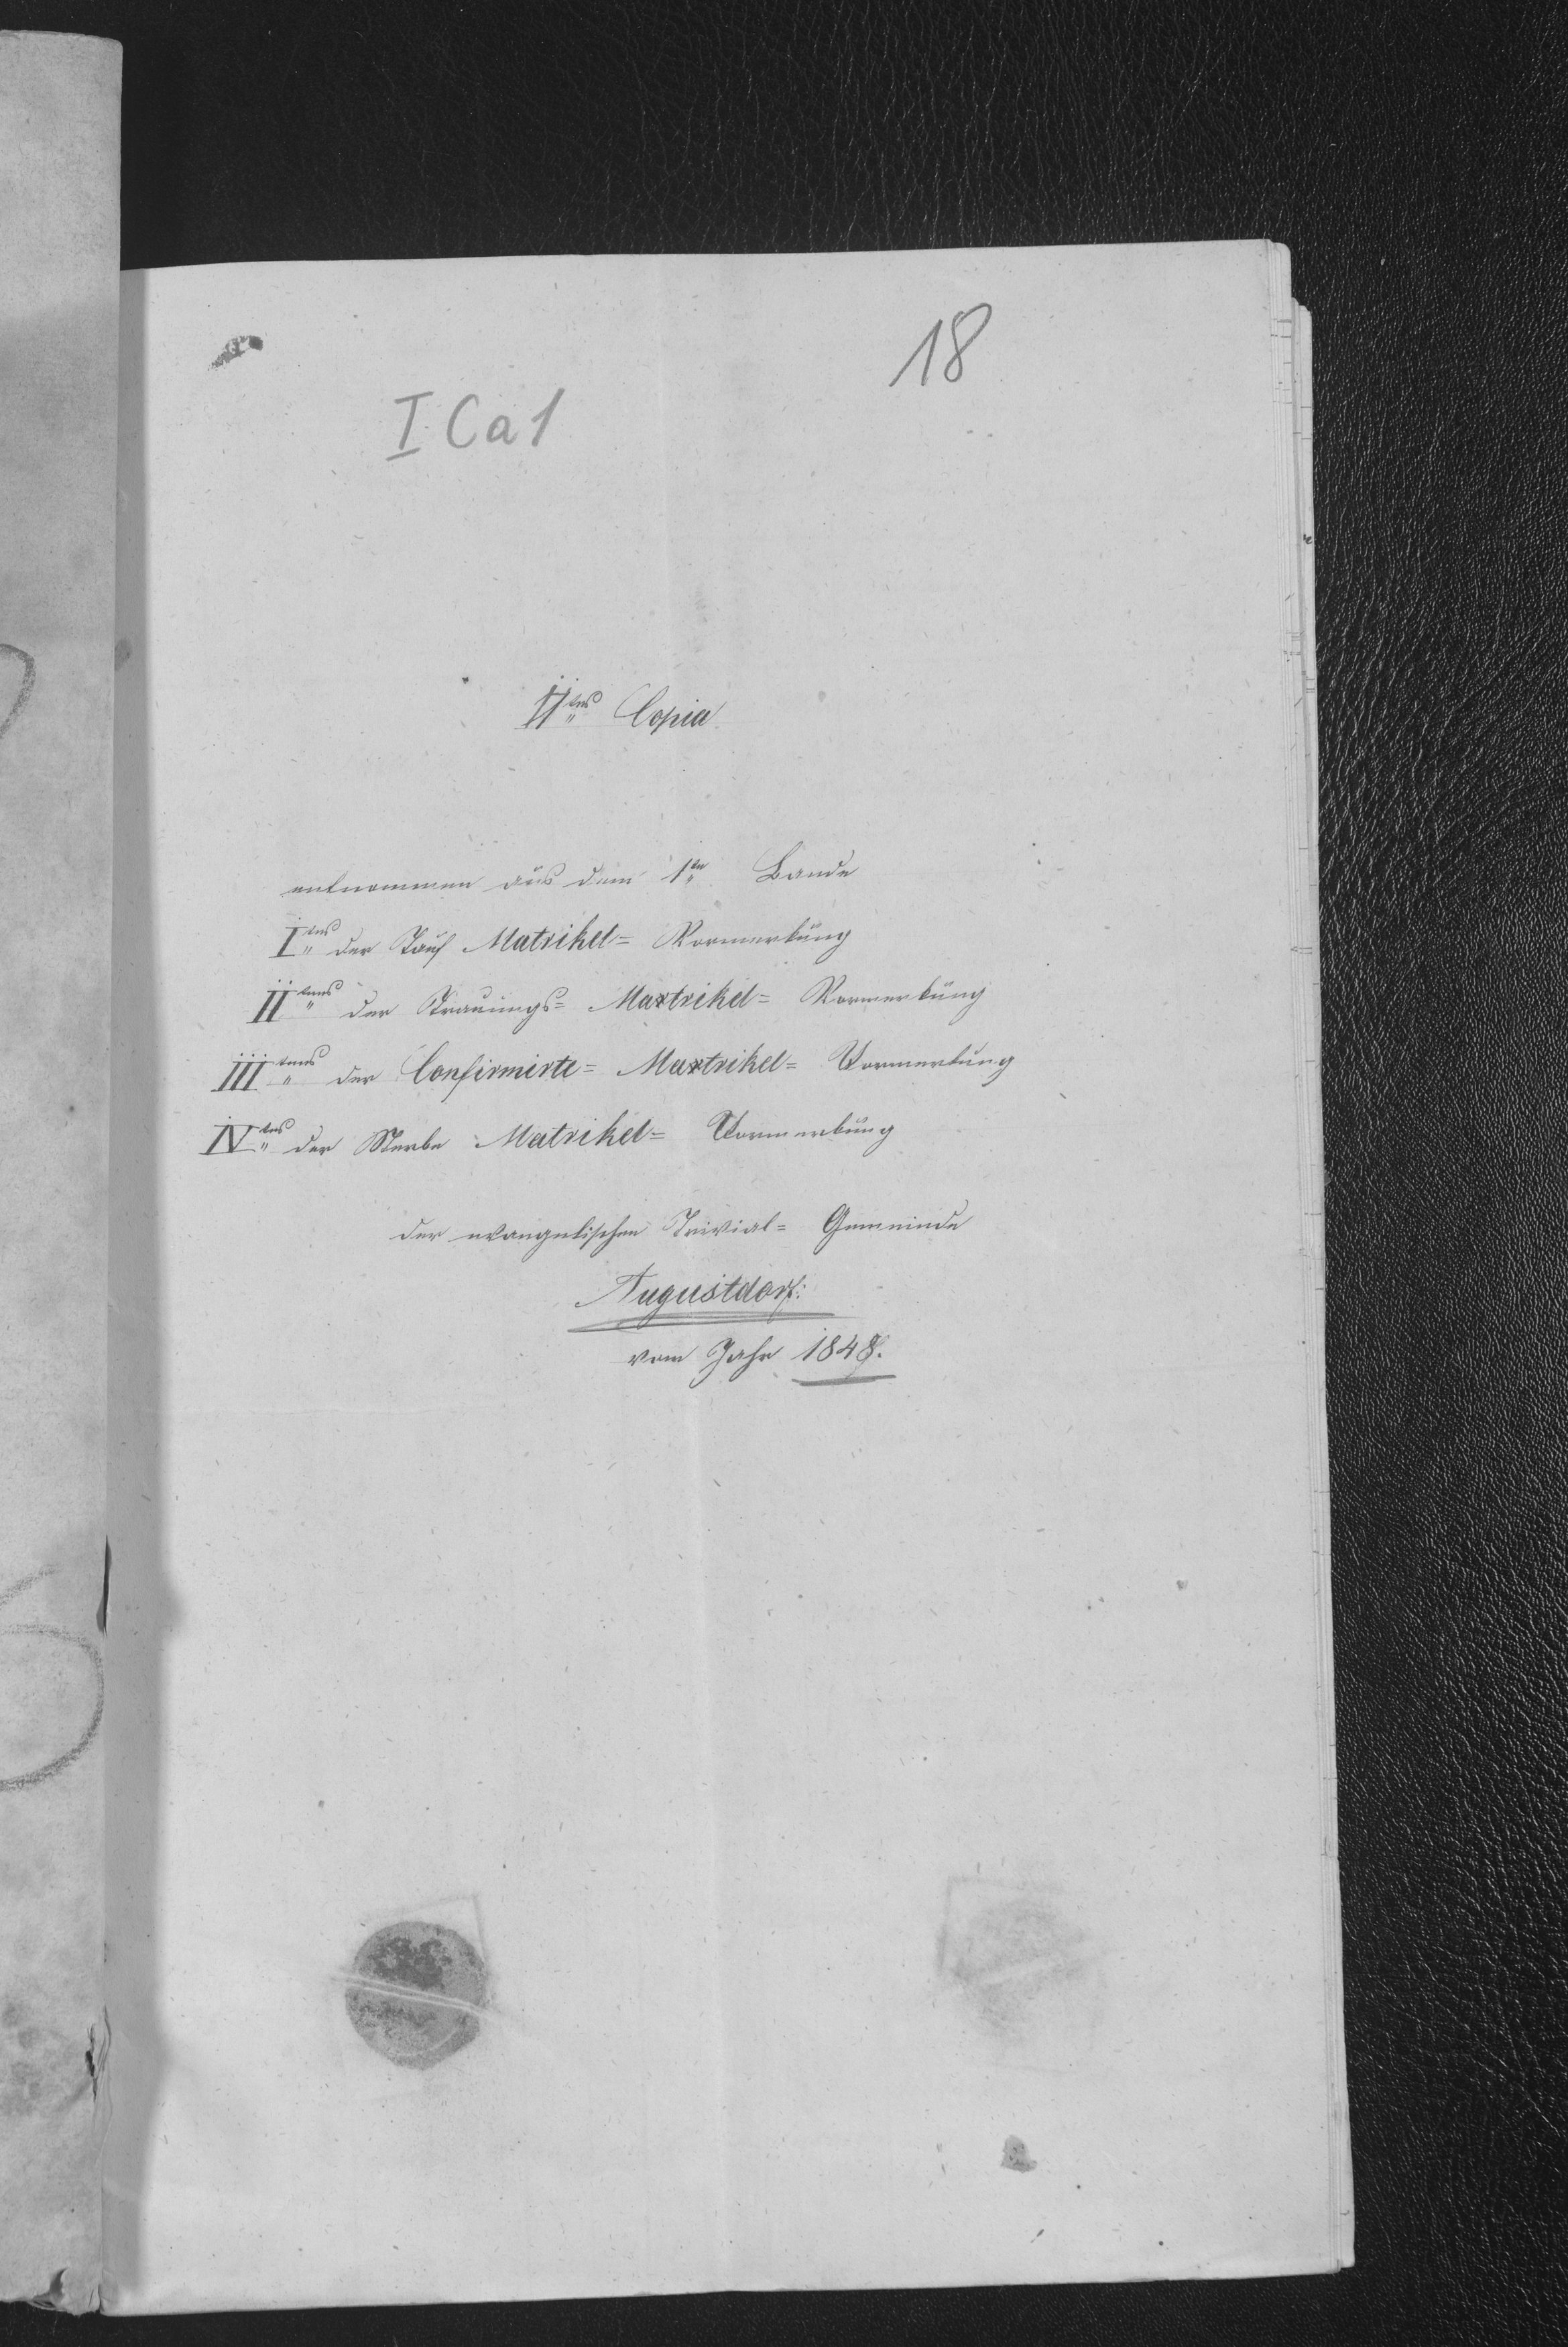 18
I Ca 1
IItes Copia
entnommen aus dem 1ten Bande
Itens der Tauf Matrikel= Vormerkung
IItens der Trauungs= Martrikel= Vormerkung
IIItens der Confirmirte= Martrikel= Vormerkung
IVtens der Sterbe Matrikel= Vormerkung
der evangelischen Trivial= Gemeinde
Augustdorf:
vom Jahr 1848.